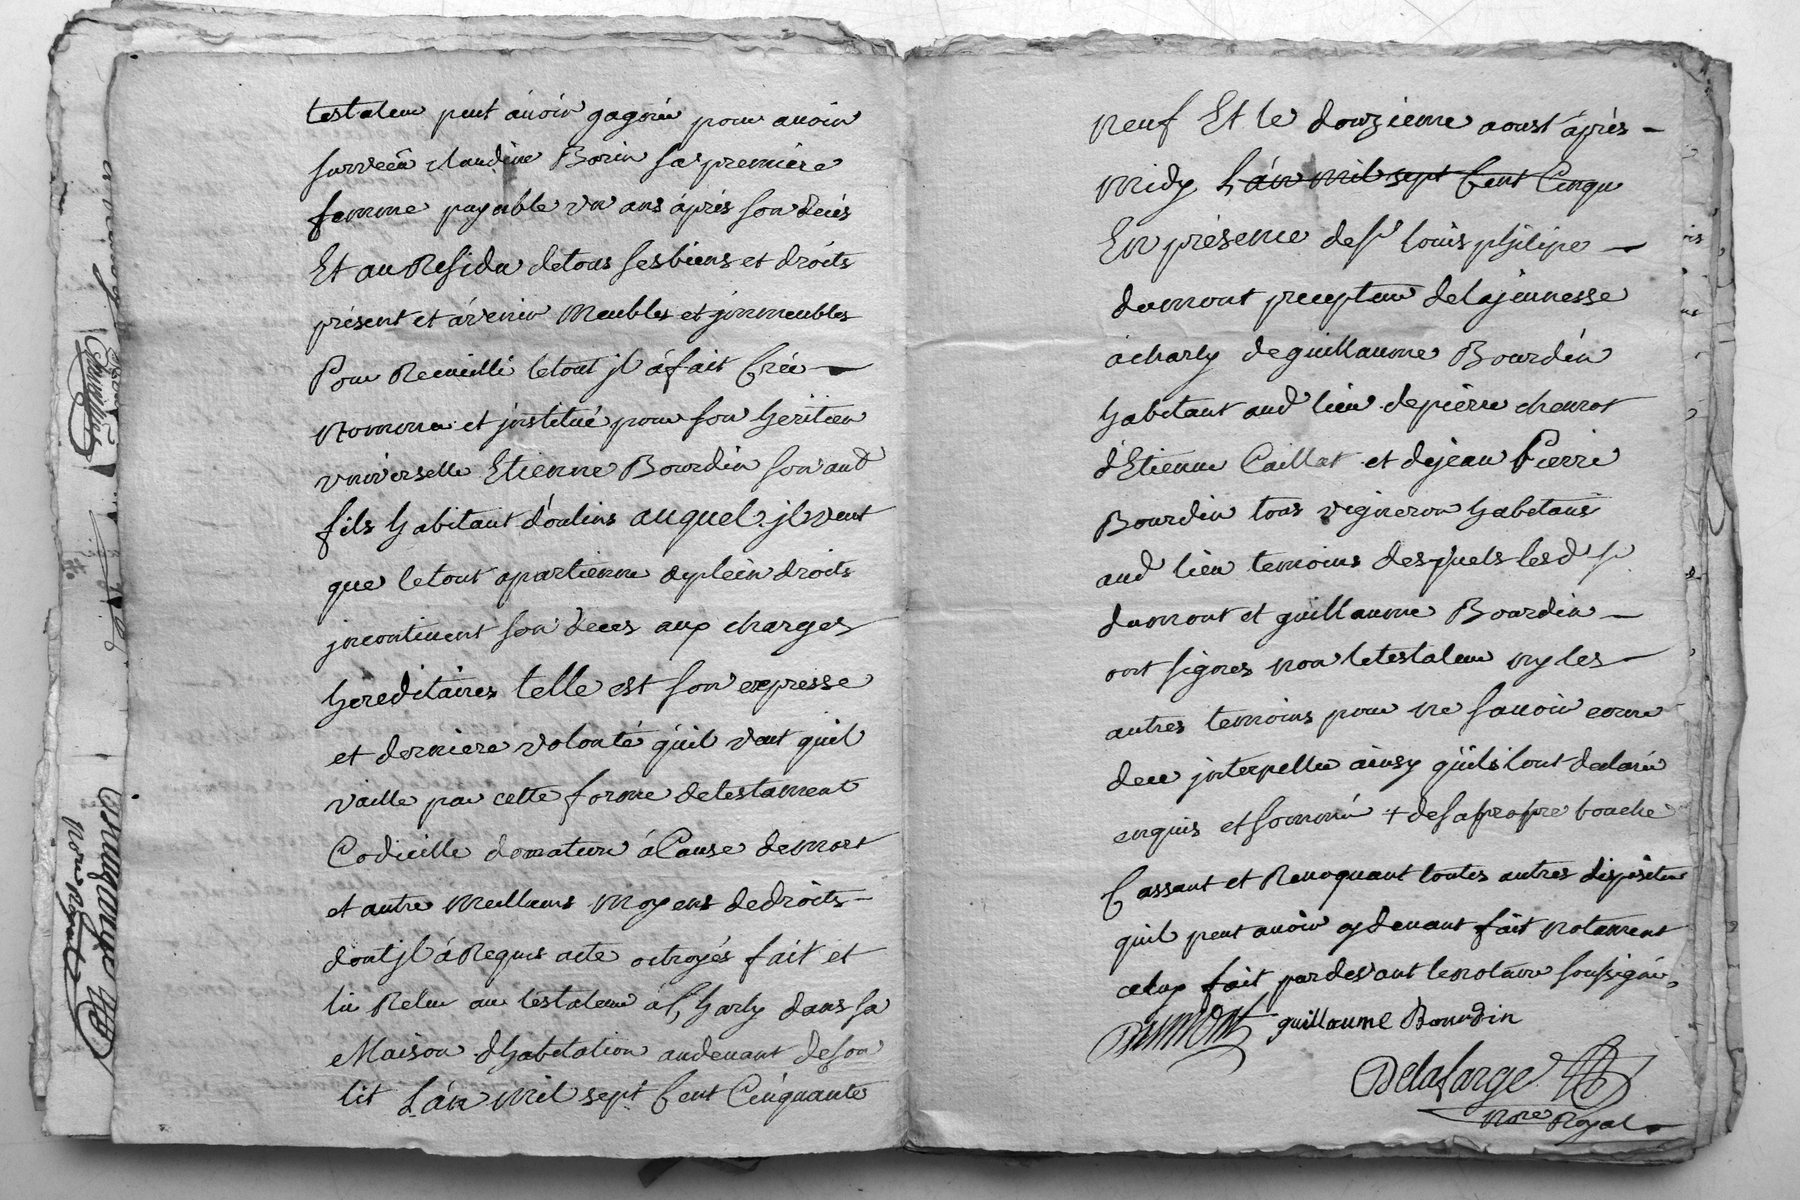 testateur peut avoir gagnée pour avoir
survécu claudine Borin sa première
femme payable un ans après son décés
Et au Residu de tous ses biens et droits
présent et avenir Meubles et jmmeubles
Pour Recueilli le tout jl a fait Créé
Nommé et jnstitué pour son héritier
universelle Etienne Bourdin son aud
fils habitant d'oulins auquel jl veut
que le tout apartienne de plein droits
jncontinent son deces aux charges
hereditaires telle est son expresse
et derniere volonté qu'il veut quil
vaille par cette forme de testament
Codicille donation á Cause de mort
et autre Meilleurs Moyens de droits
dont jl á Requis acte octroyés fait et
lu Relu au testateur á Charly dans sa
Maison d'habitation audevant de son
lit L'án Mil sept Cent Cinquante
neuf Et le douzieme aoust après
Midy L'án mil sept Cent Cinqu
En présence de sr louis philipe
dumont precepteur de la jeunesse
á charly de guillaume Bourdin
habitant aud lieu de pierre
d'Etienne Caillat et de jean Pierre
Bourdin tous vigneron habitans
aud lieu temoins desquels lesd sr
dumont et guillaume Bourdin
ont signés non le testateur ny les
autres temoins pour ne savoir
de ce jnterpellé ainsy qu'ils l'ont declaré
enquis et sommé + de sa propre bouche
Cassant et Revoquant toutes autres disposition
quil peut avoir cy devant fait notament
celuy fait par devant le notaire soussigné
Dumont guillaume Bourdin
Delafarge
Nore Royal